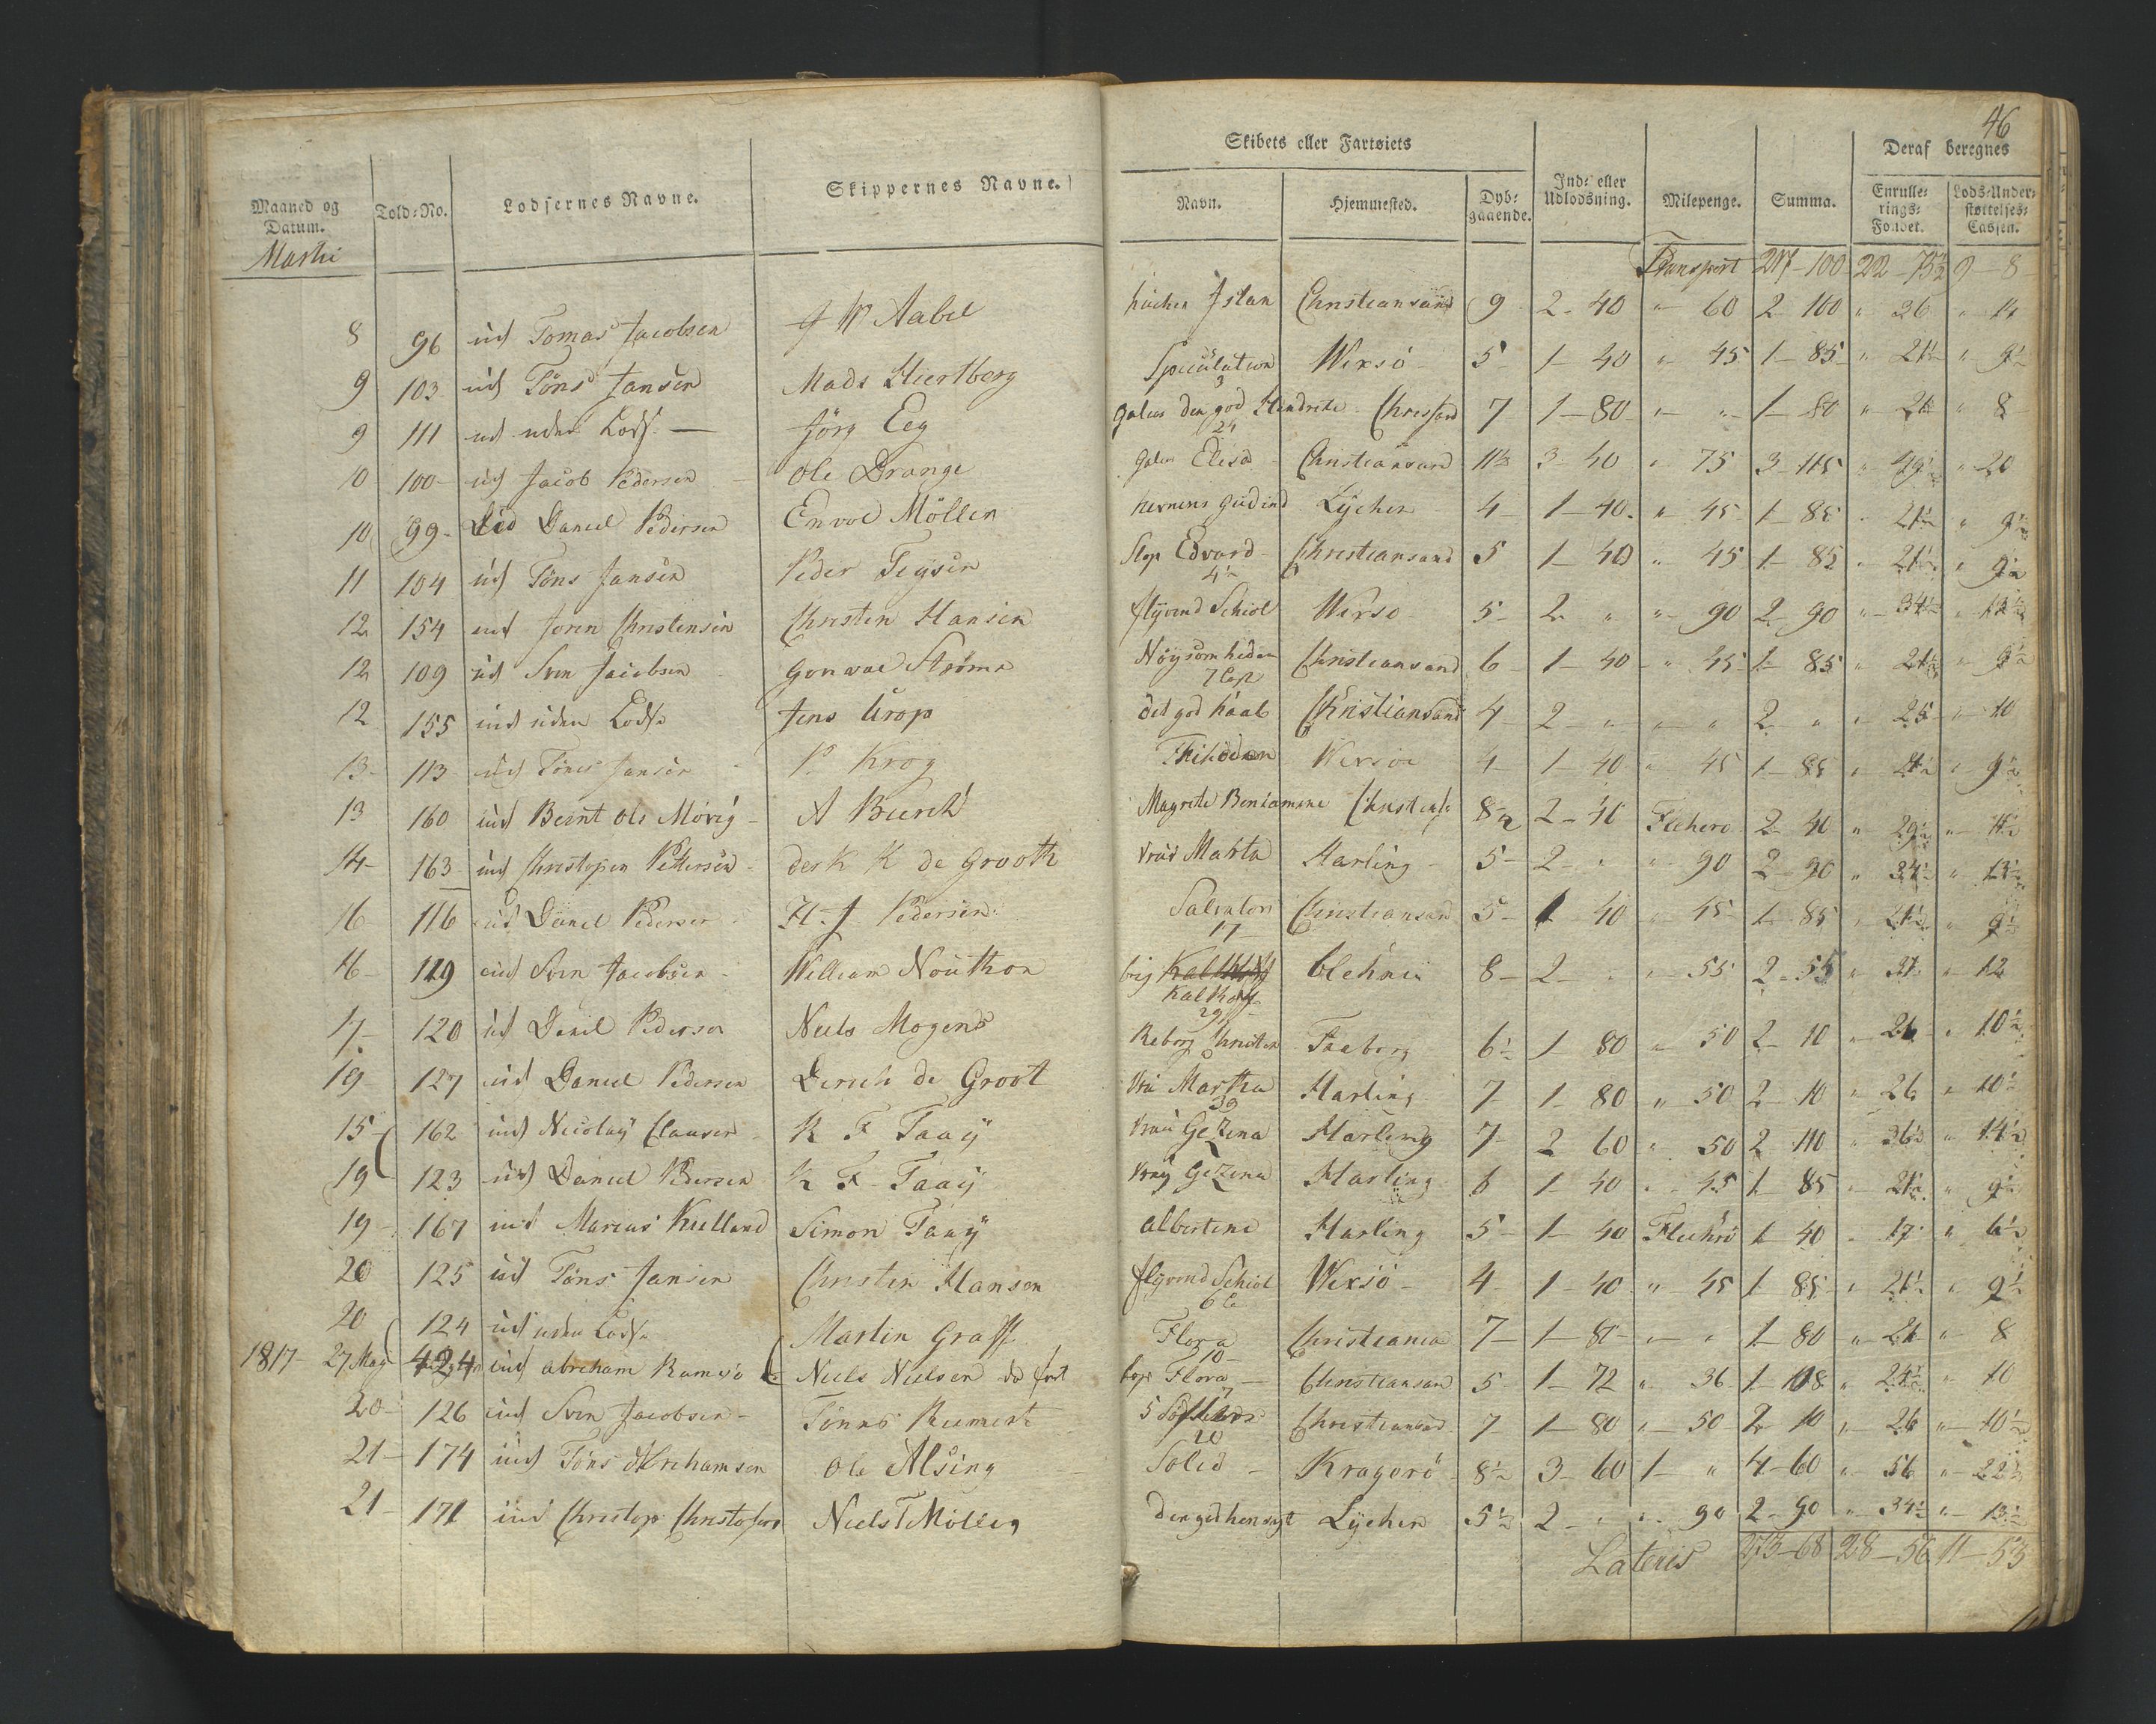 46
Maaned og Datum. Told-No. Lodsernes Navne. Skippernes Navne. Skibets eller Fartøiets Navn. Hjemmested. Dybgaaende. Ind- eller Udlodsning. Milepenge. Summa. Deraf beregnes Enrullerings-Fondet. Lods-Understøttelses-Cassen.
Martii
Transport 217-100 22-75½ 9-8
8 96 ud Tomas Jacobsen J W Aabel Island Christiansand 9 2-40 " 60 2-100 " 36 " 14
9 103 ud Töns Jansen Mads Hiertberg Speculation Wersö 5 1-40 " 45 1-85 " 21½ " 9½
3
9 111 ud uden Lods Jörg Eeg Galeas den god Hendrete 7 1-80 " " 1-80 " 21 " 8
24
10 100 ud Jacob Pedersen Ole Drange Galeas Elesa Christiansand 11½ 3-40 " 75 3-115 " 49½ " 20
10 99 ud Daniel Pedersen Envol Möller hernens Gudind Lÿcher 4 1-40 " 45 1-85 " 21½ " 9½
11 104 ud Töns Jansen Peder Teÿsen Slop Edvard Christiansand 5 1-40 " 45 1-85 " 21½ " 9½
4½
12 154 ind Joren Christensen Christen Hansen flÿvend Schiol Wersö 5 2 " " 90 2-90 " 34½ " 13½
12 109 ud Sven Jacobsen Gonval Ströme Nöÿsomheden Christiansand 6 1-40 " 45 1-85 " 21½ " 9½
12 155 ind uden Lods Jens Urop det god haab Christiansand 4 2 " " " 2 " " 25 " 10
13 113 ud Töns Jansen P Krog Wersöe 4 1-40 " 45 1-85 " 21½ " 9½
13 160 ind Bernt Ols Mövig A Buch Magrete Beniamine 8½ 2-40 Flecherö 2-40 " 29½ " 11½
14 163 ind Christopen Pettersen derk K de Grooth Martha Harling 5 2 " " 90 2-90 " 34½ " 13½
16 116 ud Daniel Pedersen H. J Pedersen Salvator Christiansand 5 1 40 " 45 1-85 " 21½ " 9½
11
16 119 ud Sven Jacobsen William Nouthon brig Kalthoff 8 2 " " 55 2-55 " 31 " 12
29
17 120 ud Daniel Pedersen Niels Mogens Faaborg 6½ 1 80 " 50 2-10 " 26 " 10½
19 127 ud Daniel Pedersen Derich de Groot Vrü Martha Harling 7 1-80 " 50 2-10 " 26 " 10½
39
15 162 ind Nicolaÿ Clausen K F Taaÿ Vrau Gezina Harling 7 2 60 " 50 2 110 " 36½ " 14½
19 123 ud Daniel Pedersen K F Taaÿ Vraÿ Gezina Harling 6 1-40 " 45 1-85 " 21½ " 9½
19 167 ind Marcus Kielland Simon Taaÿ Albertine Harling 5 1-40 Flechrö 1-40 " 17 " 6½
20 125 ud Töns Jansen Christen Hansen flÿvend Schiol Wersö 4 1-40 " 45 1-85 " 21½ " 9½
20 124 ud uden Lods Martin Graff Flora Christiania 7 1-80 " " 1-80 " 21 " 8
1817 27 Maÿ 424 ud Abreham Ramsö Niels Nielsen Flora Christiansand 5 1-72 " 36 1-108 " 24½ " 10
20 126 ud Sven Jacobsen Tönnes 5 Christiansand 7 1-80 " 50 2-10 " 26 " 10½
20
21 174 ind Töns Abrehamsen Ole Alsing Solid Kragerö 8½ 3-60 1 " 4-60 " 56 " 22½
21 171 ind Christop Christofers Niels T Möller Lÿcher 5½ 2 " " 90 2-90 " 34½ " 13½
Lateris 273-68 28-56 11-53